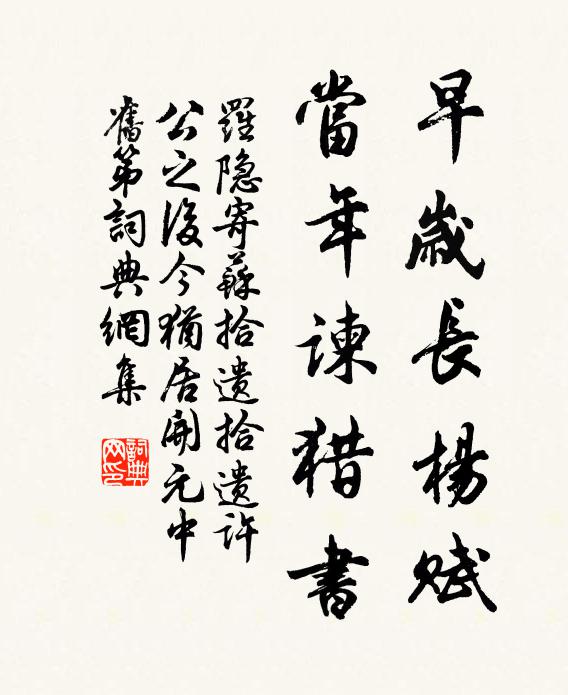 早歲長楊賦
當年諫猎書
羅隐寄蘇拾遗拾遗許
公之後今猶居開元中
舊第詞典網集
詞典网印